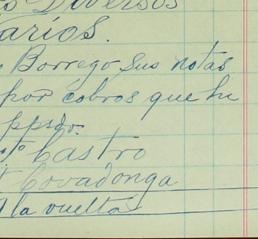 s Diversos
arios.
Borrego sus notas
por cobros que hi
ppdo.
to Castro
Covadonga
a la vuelta